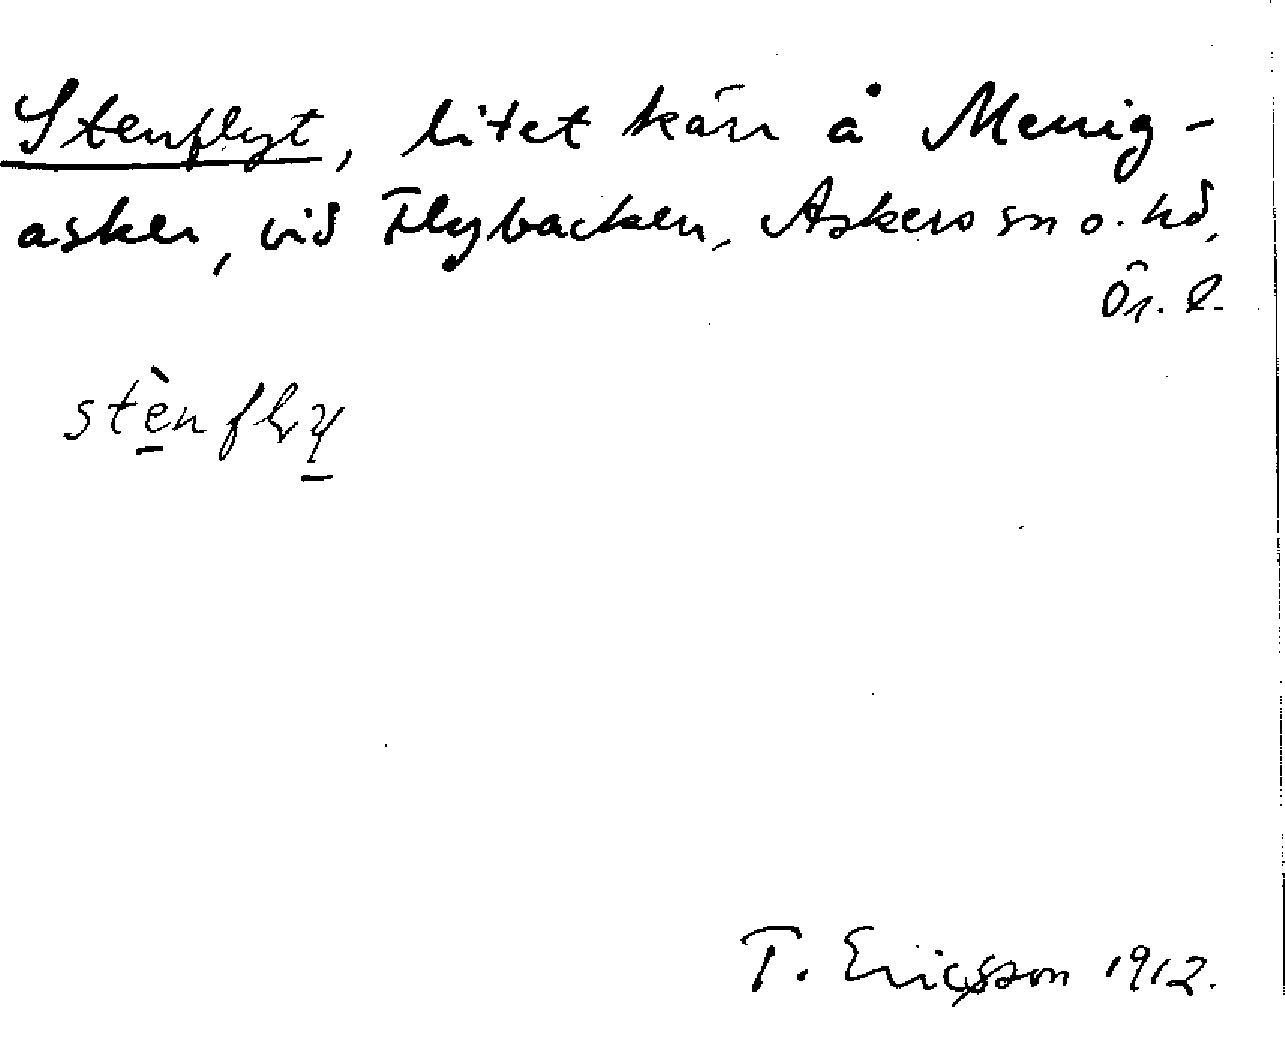 Stenflyt, litet kärr å Menig-
asker, vid Flybacken, Askers sn o. hd,
Ör. l.
stènfly
T. Ericsson 1912.